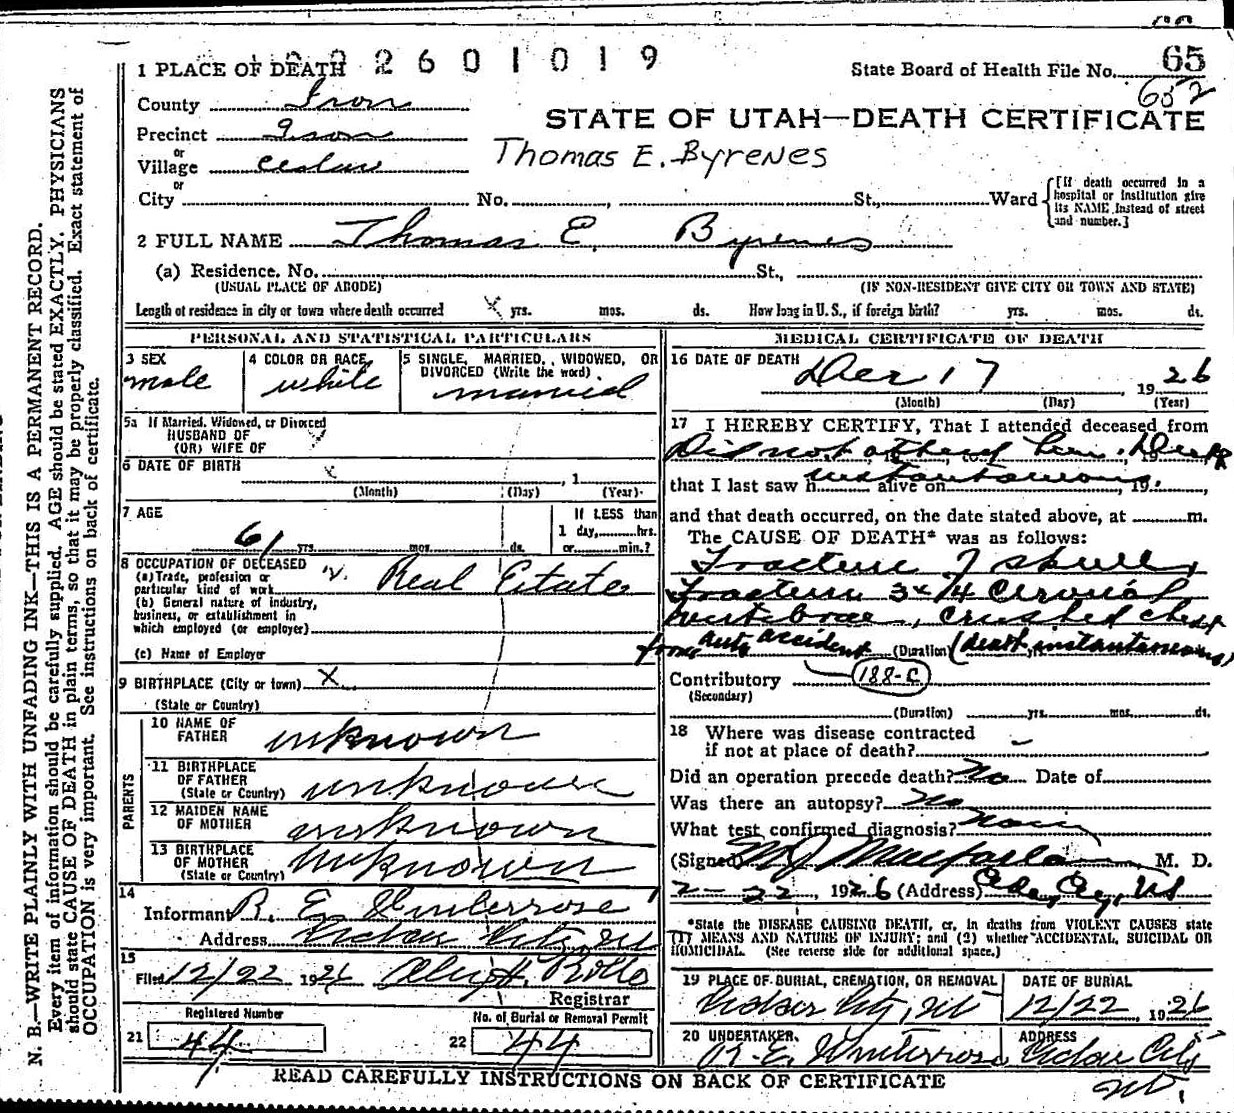 2 2 6 0 1 0 1 9
1 PLACE OF DEATH
State Board of Health File No. 65
652
County Iron
STATE OF UTAH—DEATH CERTIFICATE
Precinct Iron
or
Village Cedar
Thomas E. Byrenes
or
City No. , St., Ward
[If death occurred in a hospital or institution give its NAME instead of street and number.]
2 FULL NAME Thomas E. Byrenes
(a) Residence. No. St.,
(USUAL PLACE OF ABODE) (IF NON-RESIDENT GIVE CITY OR TOWN AND STATE)
Length of residence in city or town where death occurred x yrs. mos. ds. How long in U. S., if foreign birth? yrs. mos. ds.
PERSONAL AND STATISTICAL PARTICULARS
3 SEX male
4 COLOR OR RACE white
5 SINGLE, MARRIED, WIDOWED, OR DIVORCED (Write the word) married
5a If Married, Widowed, or Divorced
HUSBAND OF
(OR) WIFE OF
6 DATE OF BIRTH x , 1
(Month) (Day) (Year)
7 AGE 61 yrs. mos. ds.
If LESS than
1 day, hrs.
or min.?
8 OCCUPATION OF DECEASED
(a) Trade, profession or particular kind of work Real Estate
(b) General nature of industry,
business, or establishment in
which employed (or employer)
(c) Name of Employer
9 BIRTHPLACE (City or town) X
(State or Country)
PARENTS
10 NAME OF FATHER unknown
11 BIRTHPLACE OF FATHER (State or Country) unknown
12 MAIDEN NAME OF MOTHER unknown
13 BIRTHPLACE OF MOTHER (State or Country) unknown
14
Informant R. E. Winterrose
Address Cedar City, Ut
15
Filed 12/22 1926
Registrar
Registered Number
21 44
No. of Burial or Removal Permit
22 44
MEDICAL CERTIFICATE OF DEATH
16 DATE OF DEATH Dec 17 1926
(Month) (Day) (Year)
17 I HEREBY CERTIFY, That I attended deceased from
Did not attend him. Death
that I last saw h instantaneous alive on , 19 ,
and that death occurred, on the date stated above, at m.
The CAUSE OF DEATH* was as follows:
Fracture of skull,
Fracture 3 & 4 Cervical
vertebrae, crushed chest
from auto accident (Duration) (death instantaneous)
Contributory 188-C
(Secondary)
(Duration) yrs. mos. ds.
18 Where was disease contracted
if not at place of death?
Did an operation precede death? No Date of
Was there an autopsy? No
What test confirmed diagnosis?
(Signed) M J Macfarlane, M. D.
2-22, 1926 (Address)
*State the DISEASE CAUSING DEATH, or, in deaths from VIOLENT CAUSES state
(1) MEANS AND NATURE OF INJURY; and (2) whether ACCIDENTAL, SUICIDAL OR
HOMICIDAL. (See reverse side for additional space.)
19 PLACE OF BURIAL, CREMATION, OR REMOVAL Cedar City, Ut
DATE OF BURIAL 12/22 1926
20 UNDERTAKER R. E. Winterrose
ADDRESS Cedar City
Ut.
READ CAREFULLY INSTRUCTIONS ON BACK OF CERTIFICATE
N. B.—WRITE PLAINLY WITH UNFADING INK—THIS IS A PERMANENT RECORD.
Every item of information should be carefully supplied. AGE should be stated EXACTLY. PHYSICIANS
should state CAUSE OF DEATH in plain terms, so that it may be properly classified. Exact statement of
OCCUPATION is very important. See instructions on back of certificate.